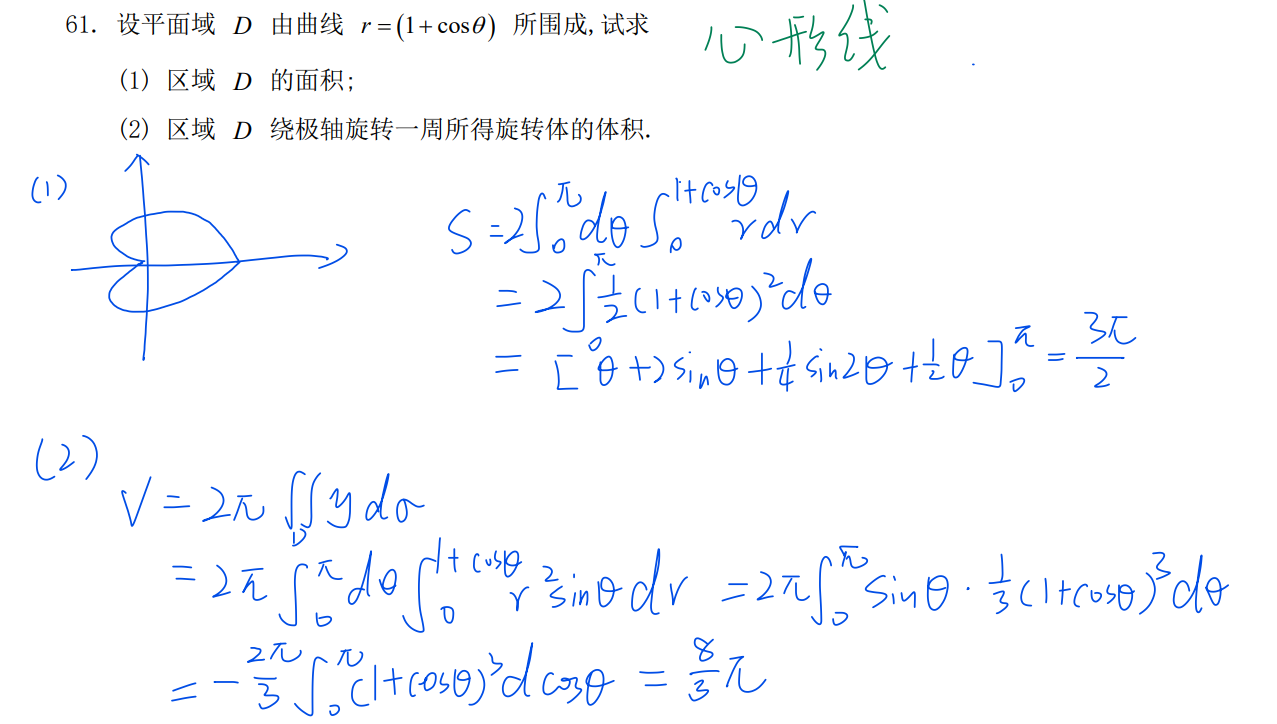 61. 设平面域 D 由曲线 r=(1+cosθ) 所围成,试求
心形线
(1) 区域 D 的面积;
(2) 区域 D 绕极轴旋转一周所得旋转体的体积.
(1)
S=2∫₀^π dθ ∫₀^{1+cosθ} r dr
= 2∫₀^π 1/2 (1+cosθ)² dθ
= [θ+2sinθ+1/4 sin2θ+1/2 θ]₀^π = 3π/2
(2)
V = 2π ∬_D y dσ
= 2π ∫₀^π dθ ∫₀^{1+cosθ} r² sinθ dr = 2π ∫₀^π sinθ · 1/3 (1+cosθ)³ dθ
= - 2π/3 ∫₀^π (1+cosθ)³ d cosθ = 8/3 π